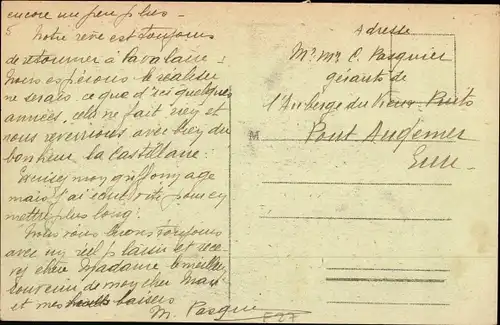 encore un peu plus.
Notre rêve est toujours
de retourner à Cavalaire.
Nous espérons le réaliser
ne serais-ce que d'ici quelques
années, cela ne fait rien et
nous reverrions avec bien du
bonheur la Castillane.
Excusez moi
mais j'ai écrit
mettre plus long.
Nous vous lirons toujours
avec un réel plaisir et rece
vez chère Madame le meilleur
souvenir de mon cher Mari
et mes baisers
M. Pasquier
Adresse
Mr. Mme C. Pasquier
gérants de
l'Auberge du Vieux Puits
Pont Audemer
Eure
M
E27